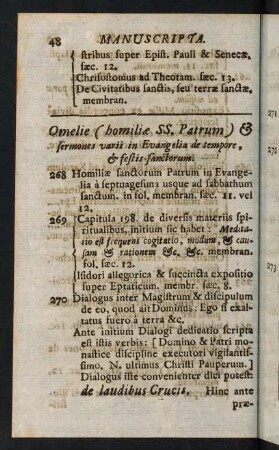 48 MANUSCRIPTA.
stribus super Epist. Pauli & Senecæ,
sæc. 12.
Chrisostomus ad Theotam. sæc. 13.
De Civitatibus sanctis, seu terræ sanctæ,
membran.
Omelie (homiliæ SS. Patrum) &
sermones varii in Evangelia de tempore,
& festis-sanctorum.
268 Homiliæ sanctorum Patrum in Evange-
lia à septuagesima usque ad sabbathum
sanctum. in fol. membran. sæc. 11. vel
12.
269 Capitula 198. de diversis materiis spi-
ritualibus, initium sic habet: Medita-
tio est frequens cogitatio, modum, & cau-
sam & rationem &c. &c. membran.
fol. sæc. 12.
Isidori allegorica & succincta expositio
super Eptaticum. membr. sæc. 8.
270 Dialogus inter Magistrum & discipulum
de eo, quod ait Dominus: Ego si exal-
tatus fuero à terra &c.
Ante initium Dialogi dedicatio scripta
est istis verbis: [Domino & Patri mo-
nasticæ disciplinæ executori vigilantis-
simo, N. ultimus Christi Pauperum.]
Dialogus iste convenienter dici potest
de laudibus Crucis, Hinc ante
præ-